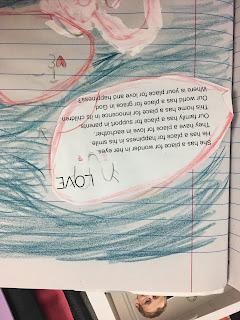 LOVE
She has a place for wonder in her eyes.
He has a place for happiness in his smile.
They have a place for love in eachother.
Our family has a place for support in parents.
This home has a place for innocence in its children
Our world has a place for grace in God.
Where is your place for love and happiness?